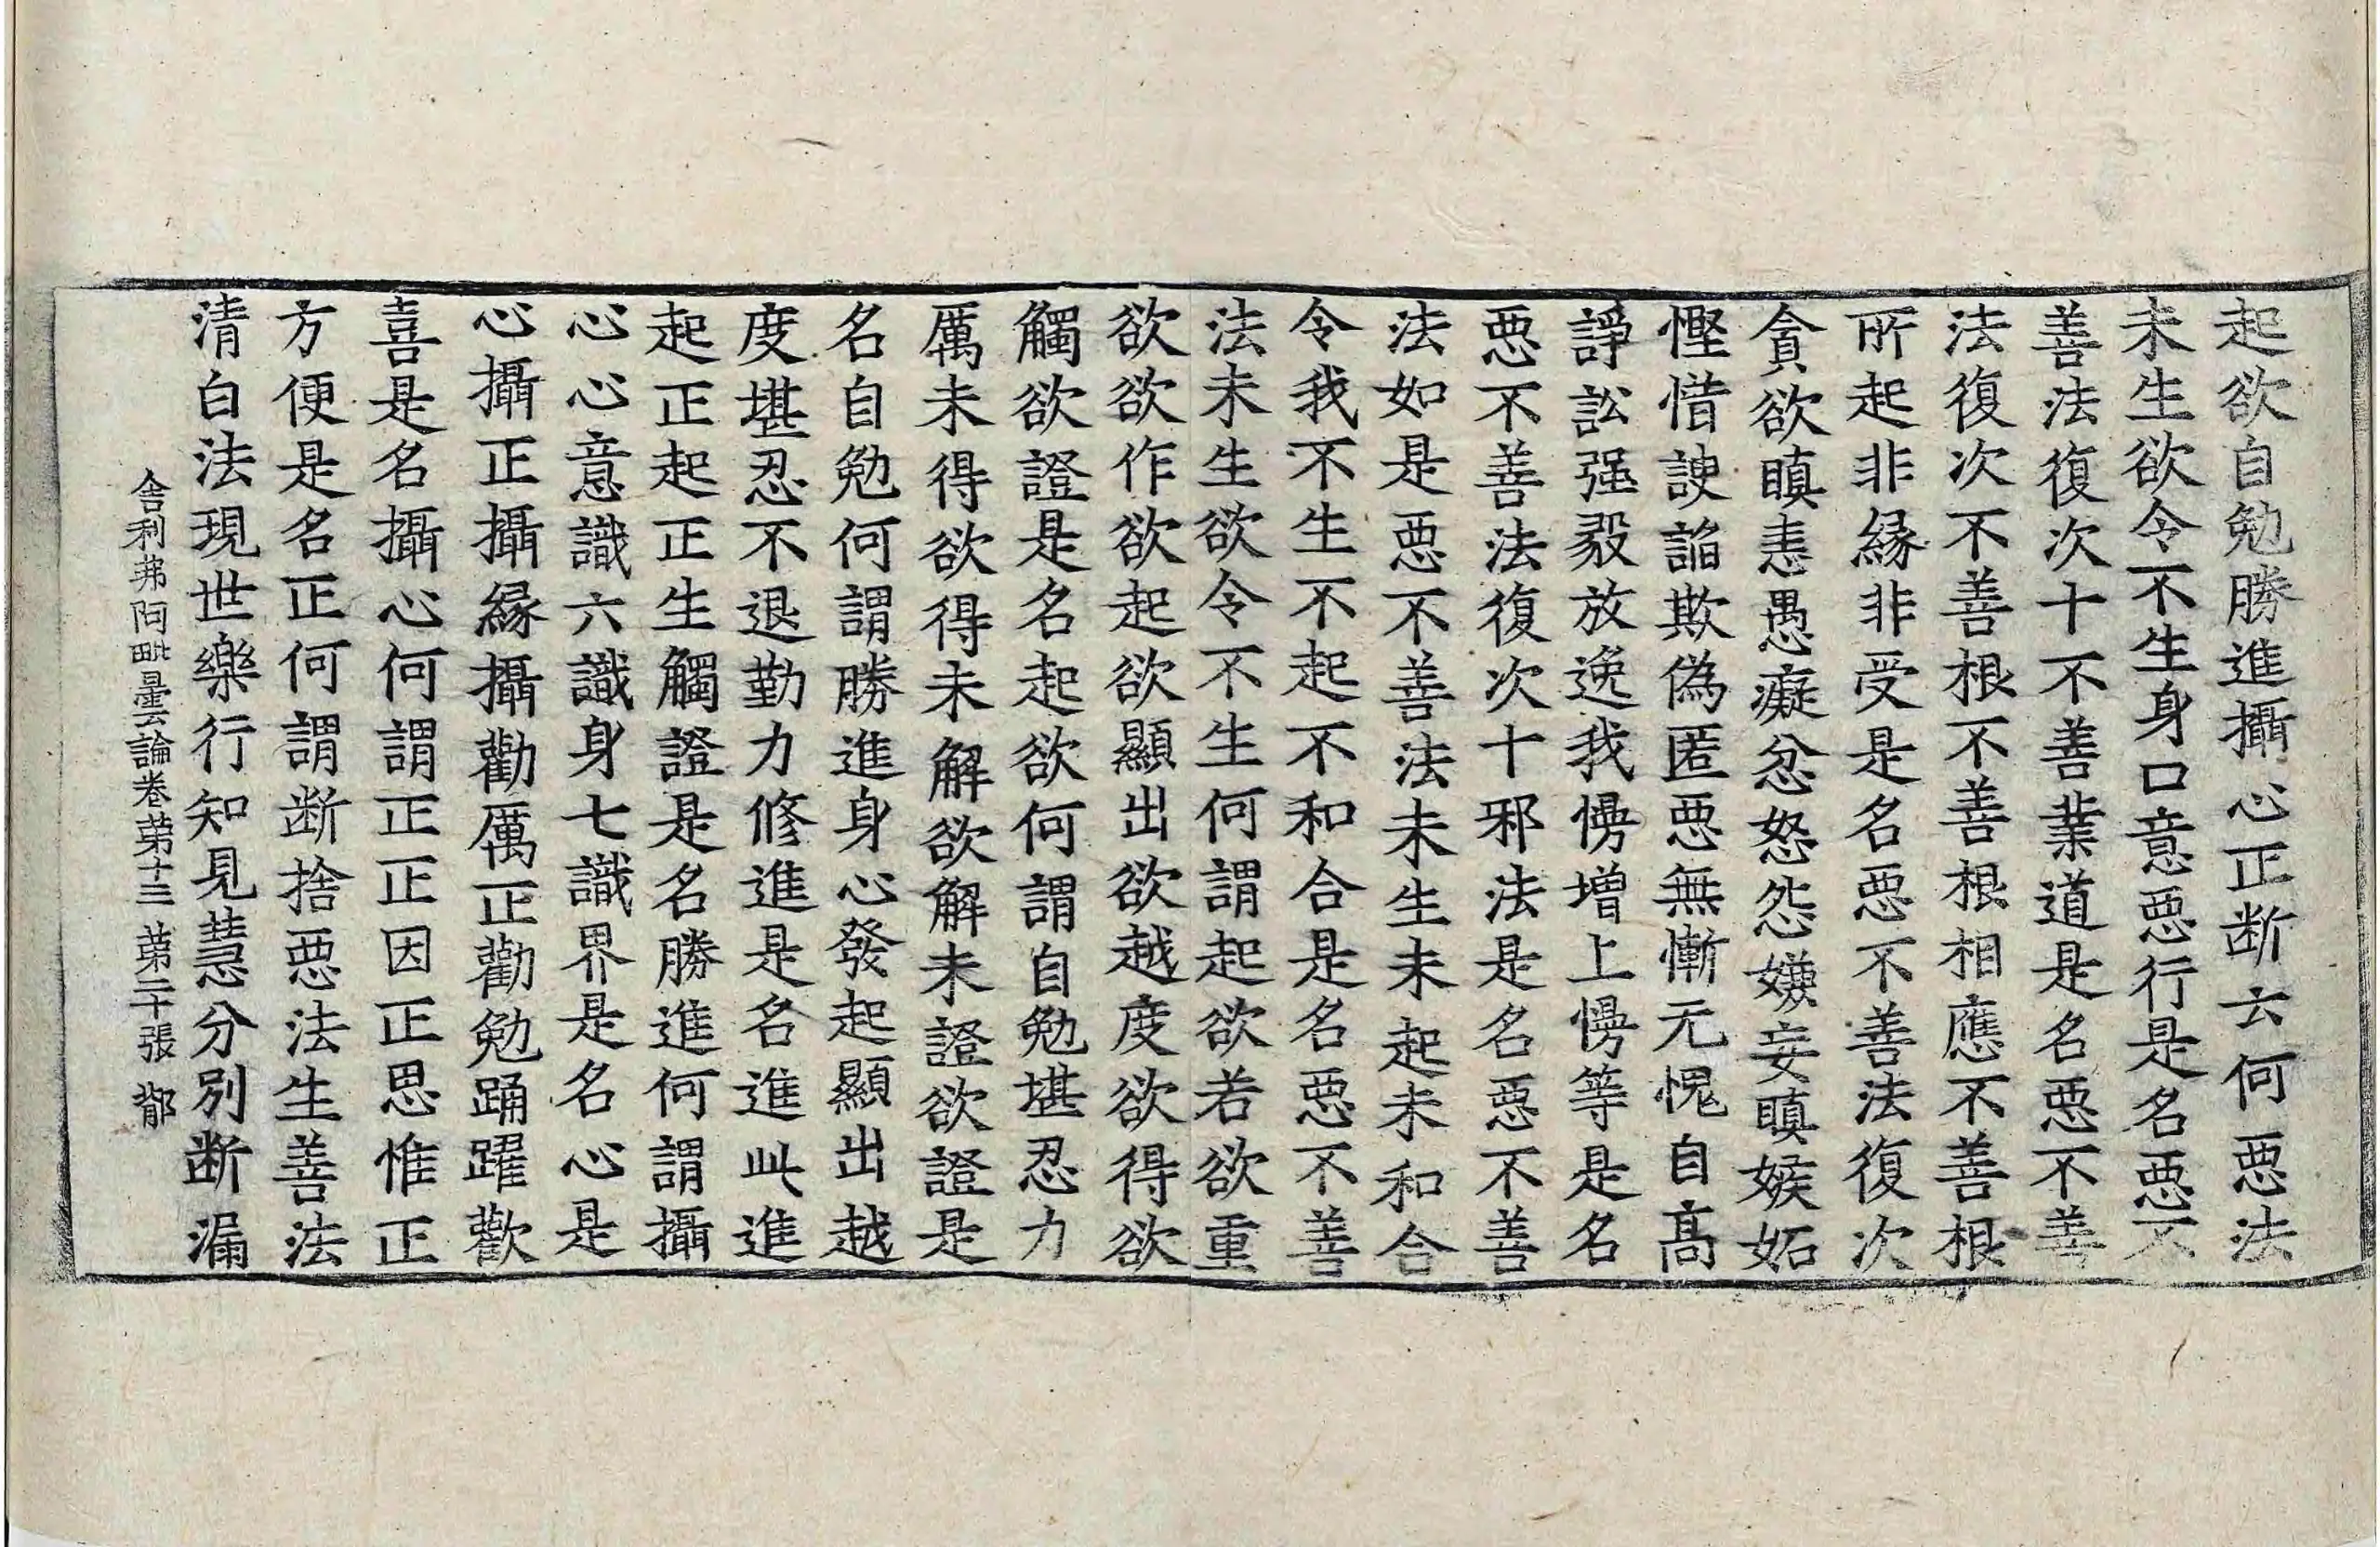 起欲自勉勝進攝心正断云何惡法
未生欲令不生身口意惡行是名惡不
善法復次十不善業道是名惡不善
法復次不善根不善根相應不善根
所起非緣非受是名惡不善法復次
貪欲瞋恚愚癡忿怒怨嫌妄瞋嫉妬
慳惜諛諂欺偽匿惡無慚无愧自高
諍訟强毅放逸我慢增上慢等是名
惡不善法復次十邪法是名惡不善
法如是惡不善法未生未起未和合
令我不生不起不和合是名惡不善
法未生欲令不生何謂起欲若欲重
欲欲作欲起欲顯出欲越度欲得欲
觸欲證是名起欲何謂自勉堪忍力
厲未得欲得未解欲解未證欲證是
名自勉何謂勝進身心發起顯出越
度堪忍不退勤力修進是名進此進
起正起正生觸證是名勝進何謂攝
心心意識六識身七識界是名心是
心攝正攝緣攝勸厲正勸勉踊躍歡
喜是名攝心何謂正正因正思惟正
方便是名正何謂断捨惡法生善法
清白法現世樂行知見慧分別断漏
舍利弗阿毗曇論卷第十三 第二十張 㪣